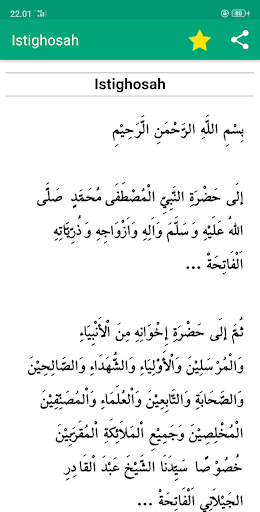 22.01
Istighosah
Istighosah
بِسْمِ اللَّهِ الرَّحْمَنِ الرَّحِيْمِ
اِلَى حَضْرَةِ النَّبِيِّ الْمُصْطَفَى مُحَمَّدٍ صَلَّى
اللهُ عَلَيْهِ وَسَلَّمَ وَاَلِهِ وَاَزْوَاجِهِ وَذُرِّيَّاتِهِ
اَلْفَاتِحَةْ ...
ثُمَّ اِلَى حَضْرَةِ اِخْوَانِهِ مِنَ الْأَنْبِيَاءِ
وَالْمُرْسَلِيْنَ وَالْأَوْلِيَاءِ وَالشُّهَدَاءِ وَالصَّالِحِيْنَ
وَالصَّحَابَةِ وَالتَّابِعِيْنَ وَالْعُلَمَاءِ وَالْمُصَنِّفِيْنَ
الْمُخْلِصِيْنَ وَجَمِيْعِ الْمَلَائِكَةِ الْمُقَرَّبِيْنَ
خُصُوْصًا سَيِّدَنَا الشَّيْخَ عَبْدَ الْقَادِرِ
الْجَيْلَانِي اَلْفَاتِحَةْ ...